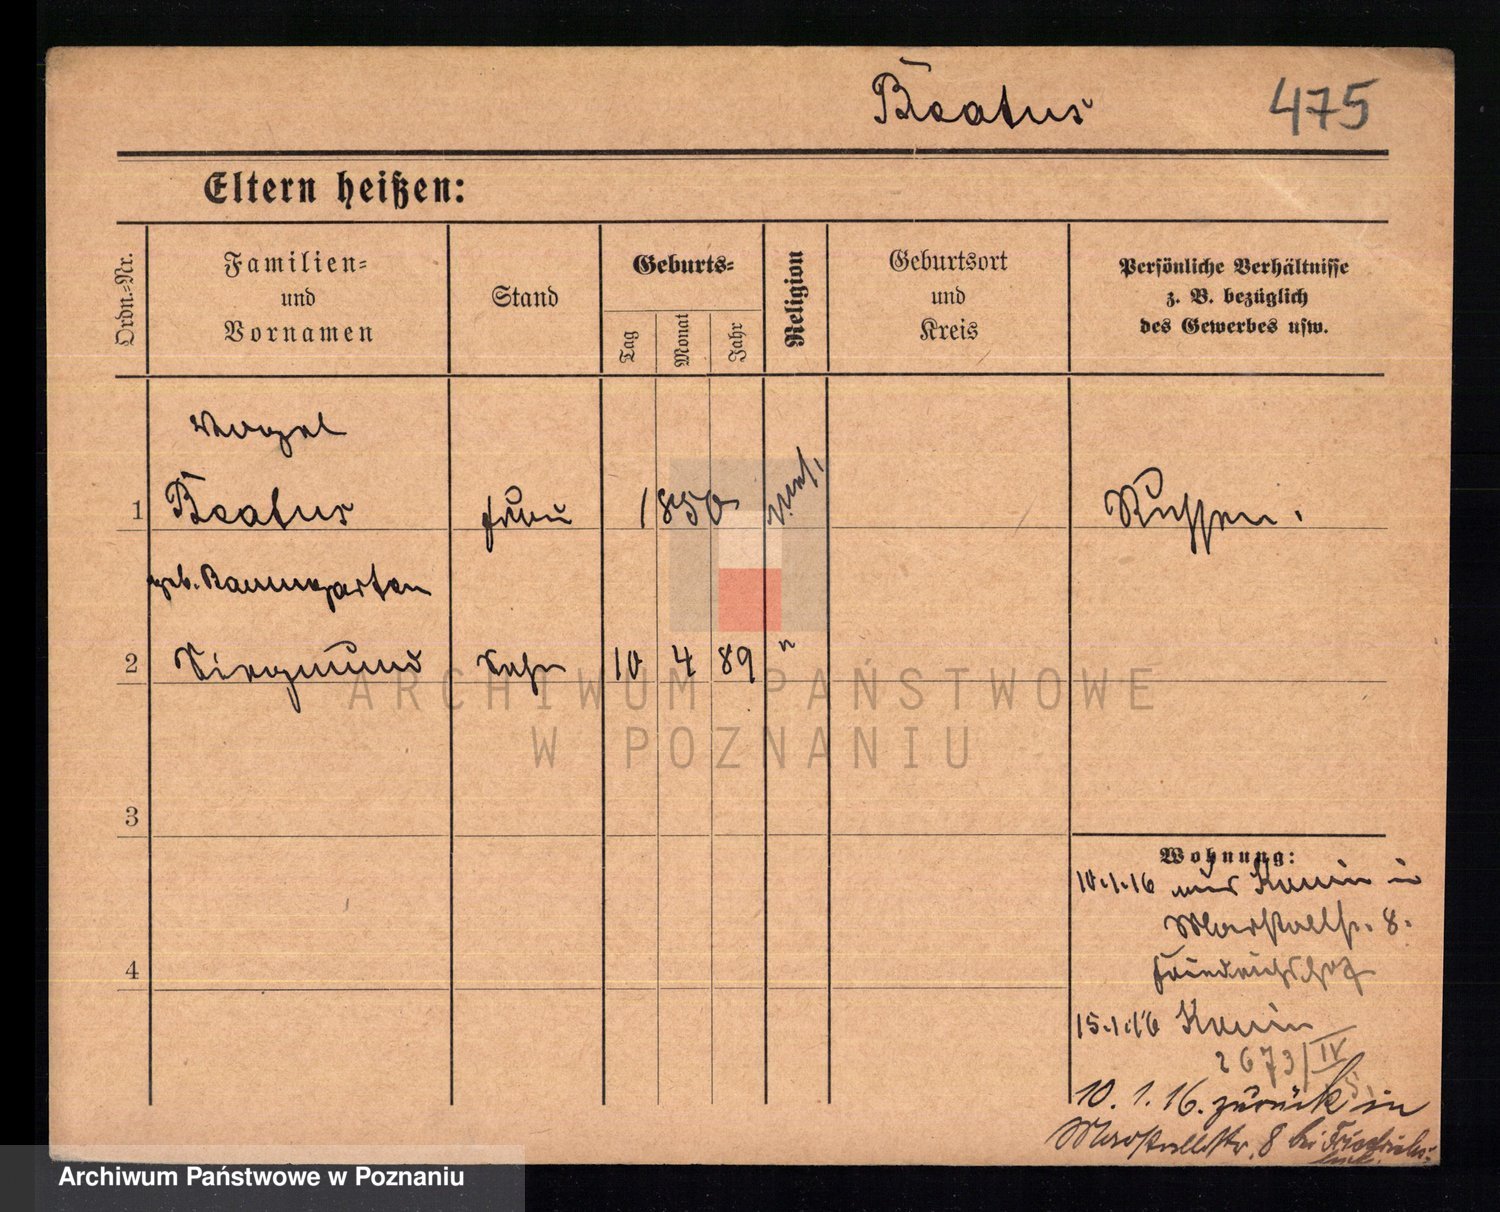 Beatus 475
Eltern heißen:
Ordn.-Nr.
Familien-
und
Vornamen
Stand
Geburts-
Tag
Monat
Jahr
Religion
Geburtsort
und
Kreis
Persönliche Verhältnisse
z. B. bezüglich
des Gewerbes usw.
1
Beatus Frau 1850 Russen.
geb. Baumgarten
2 Siegmund Sohn 10 4 89 "
3
4
Wohnung:
10.1.16 aus Konin in
Marstallstr. 8.
Friedrichshof
15.1.16 Konin
2673/IV
10. 1. 16. zurück in
Marstallstr. 8 bei
ARCHIWUM PAŃSTWOWE
W POZNANIU
Archiwum Państwowe w Poznaniu